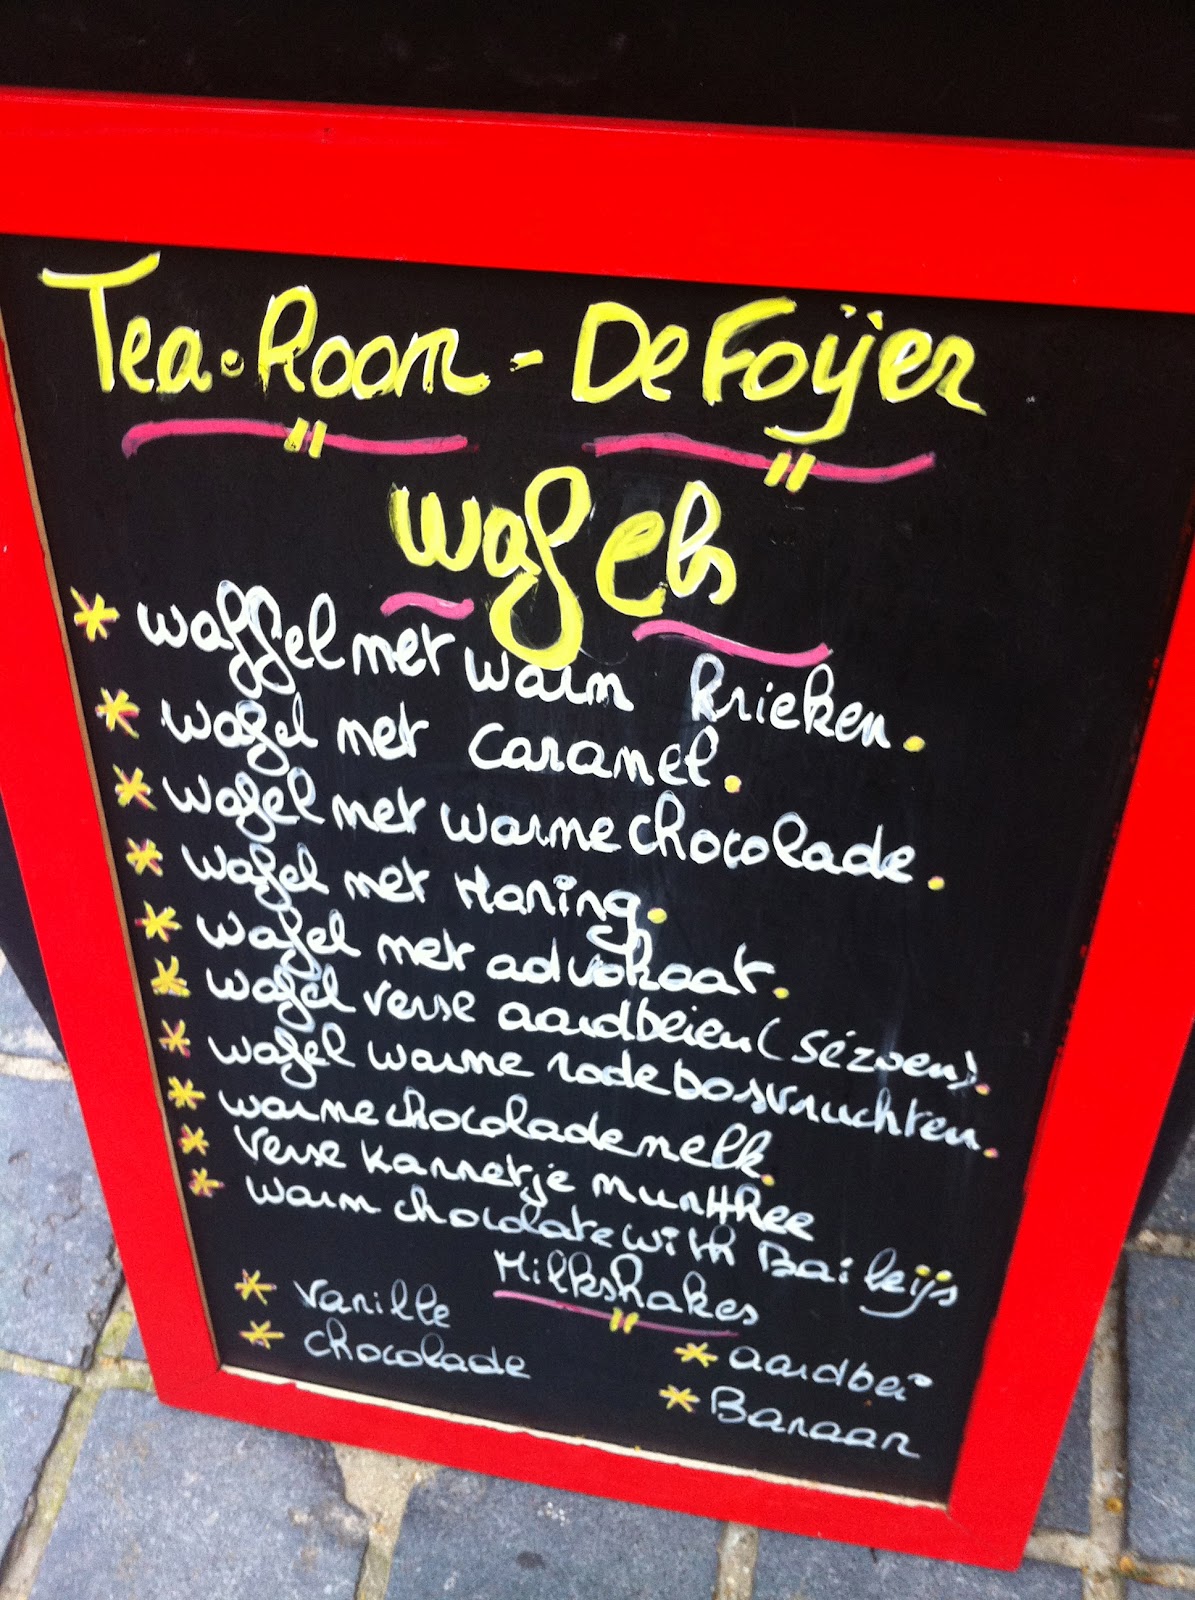 Tea-Room - De Foÿer
Wafels
* waffel met warm krieken.
* wafel met caramel.
* wafel met warme chocolade.
* wafel met Honing.
* wafel met advokaat.
* wafel verse aardbeien (sézoen).
* wafel warme rode bosvruchten.
* warme chocolademelk.
* verse kannetje munthee
* warm chocolate with Baileijs
Milkshakes
* Vanille
* chocolade
* aardbei
* Banaan